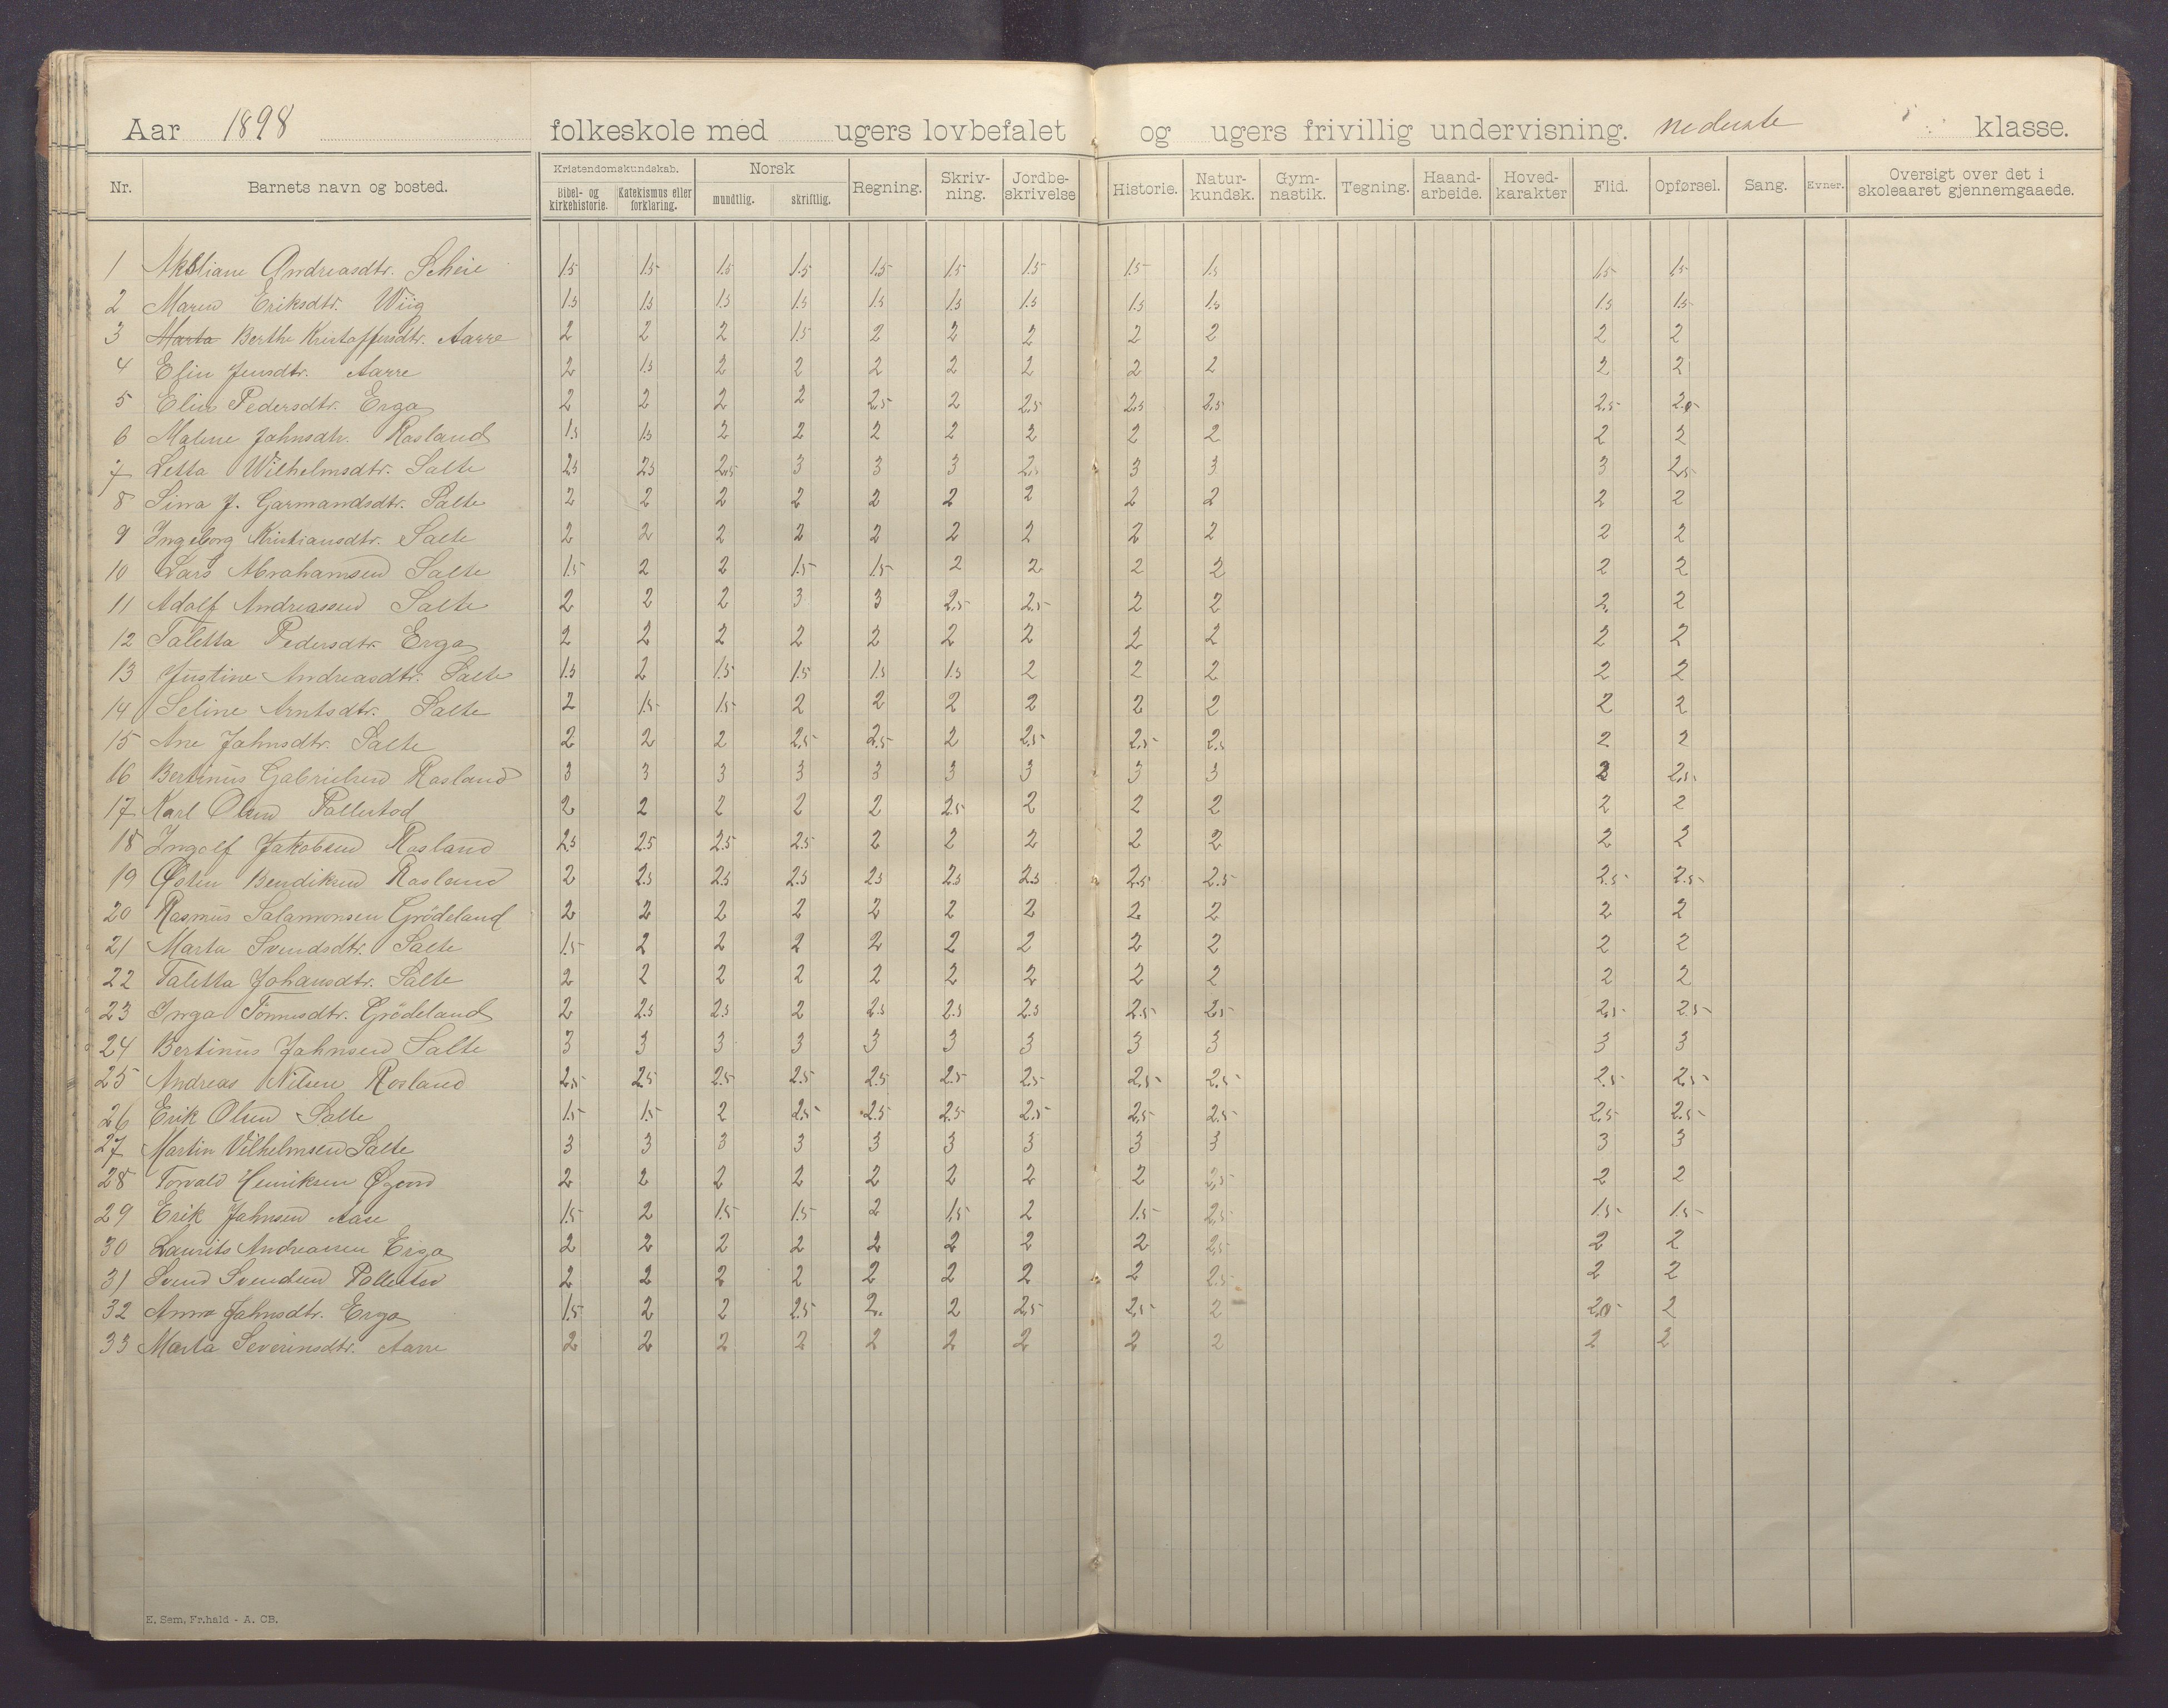 Aar 1898 folkeskole med ugers lovbefalet og ugers frivillig undervisning. nederste klasse.
Nr. Barnets navn og bosted. Kristendomskundskab. Bibel- og kirkehistorie. Katekismus eller forklaring. Norsk mundtlig. skriftlig. Regning. Skriv-ning. Jordbe-skrivelse Historie. Natur-kundsk. Gym-nastik. Tegning. Haand-arbeide. Hoved-karakter Flid. Opførsel. Sang. Evner. Oversigt over det i skoleaaret gjennemgaaede.
1 Andreasdtr. Scheie 1.5 1.5 1.5 1.5 1.5 1.5 1.5 1.5 1.5 1.5 1.5
2 Maren Eriksdtr. Wiig 1.5 1.5 1.5 1.5 1.5 1.5 1.5 1.5 1.5 1.5 1.5
3 Marta Berthe Kristoffersdtr. Aarre 2 2 2 1.5 2 2 2 2 2 2 2
4 Elin Jensdtr. Aarre 2 1.5 2 2 2 2 2 2 2 2 2
5 Elise Pedersdtr. Erga 2 2 2 2 2.5 2 2.5 2.5 2.5 2.5 2.5
6 Malene Jahnsdtr. Rosland 1.5 1.5 2 2 2 2 2 2 2 2 2
7 Letta Wilhelmsdtr. Salte 2.5 2.5 2.5 3 3 3 2.5 3 3 3 2.5
8 Sina J. Garmandsdtr. Salte 2 2 2 2 2 2 2 2 2 2 2
9 Ingeborg Kristiansdtr. Salte 2 2 2 2 2 2 2 2 2 2 2
10 Lars Abrahamsen Salte 1.5 2 2 1.5 1.5 2 2 2 2 2 2
11 Adolf Andreassen Salte 2 2 2 3 3 2.5 2.5 2 2 2 2
12 Taletta Pedersdtr. Erga 2 2 2 2 2 2 2 2 2 2 2
13 Justine Andreasdtr. Salte 1.5 2 1.5 1.5 1.5 1.5 2 2 2 2 2
14 Seline Arntsdtr. Salte 2 1.5 1.5 2 2 2 2 2 2 2 2
15 Ane Jahnsdtr. Salte 2 2 2 2.5 2.5 2 2.5 2.5 2.5 2 2
16 Bertinus Gabrielsen Rosland 3 3 3 3 3 3 3 3 3 2 2.5
17 Karl Olsen Pollestad 2 2 2 2 2 2.5 2 2 2 2 2
18 Ingolf Jakobsen Rosland 2.5 2.5 2.5 2.5 2 2 2 2 2 2 2
19 Østen Bendiksen Rosland 2 2.5 2.5 2.5 2.5 2.5 2.5 2.5 2.5 2.5 2.5
20 Rasmus Salamonsen Grødeland 2 2 2 2 2 2 2 2 2 2 2
21 Marta Svendsdtr. Salte 1.5 2 2 2 2 2 2 2 2 2 2
22 Taletta Johansdtr. Salte 2 2 2 2 2 2 2 2 2 2 2
23 Inga Tønnesdtr. Grødeland 2 2.5 2.5 2 2.5 2.5 2.5 2.5 2.5 2.5 2.5
24 Bertinus Jahnsen Salte 3 3 3 3 3 3 3 3 3 3 3
25 Andreas Nilsen Rosland 2.5 2.5 2.5 2.5 2.5 2.5 2.5 2.5 2.5 2.5 2.5
26 Erik Olsen Salte 1.5 1.5 2 2.5 2.5 2.5 2.5 2.5 2.5 2.5 2.5
27 Martin Vilhelmsen Salte 3 3 3 3 3 3 3 3 3 3 3
28 Torvald Henriksen 2 2 2 2 2 2 2 2 2.5 2 2
29 Erik Jahnsen Aase 1.5 2 1.5 1.5 2 1.5 2 1.5 2.5 1.5 1.5
30 Laurits Andreassen Erga 2 2 2 2 2 2 2 2 2.5 2 2
31 Svend Svendsen Pollestad 2 2 2 2 2 2 2 2 2.5 2 2
32 Anna Jahnsdtr. Erga 1.5 2 2 2.5 2. 2 2.5 2.5 2 2.5 2
33 Marta Severinsdtr. Aarre 2 2 2 2 2 2 2 2 2 2 2
E. Sem, Fr.hald - A. CB.